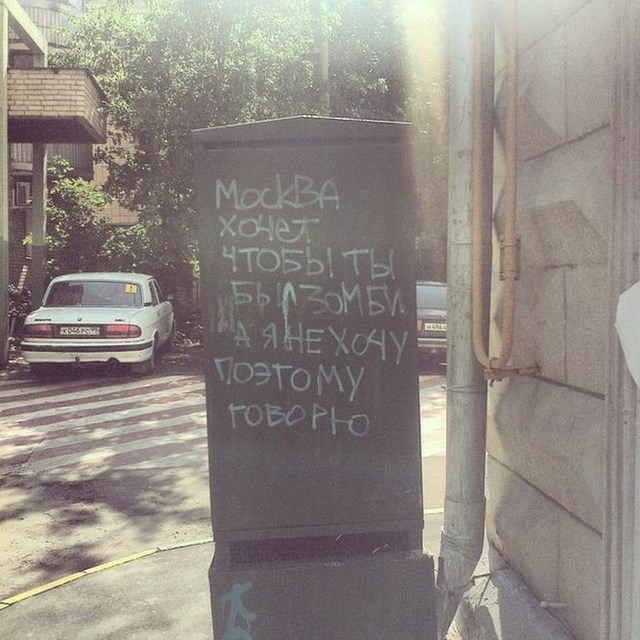 МОСКВА
ХОЧЕТ
ЧТОБЫ ТЫ
БЫЛ ЗОМБИ
А Я НЕ ХОЧУ
ПОЭТОМУ
ГОВОРЮ